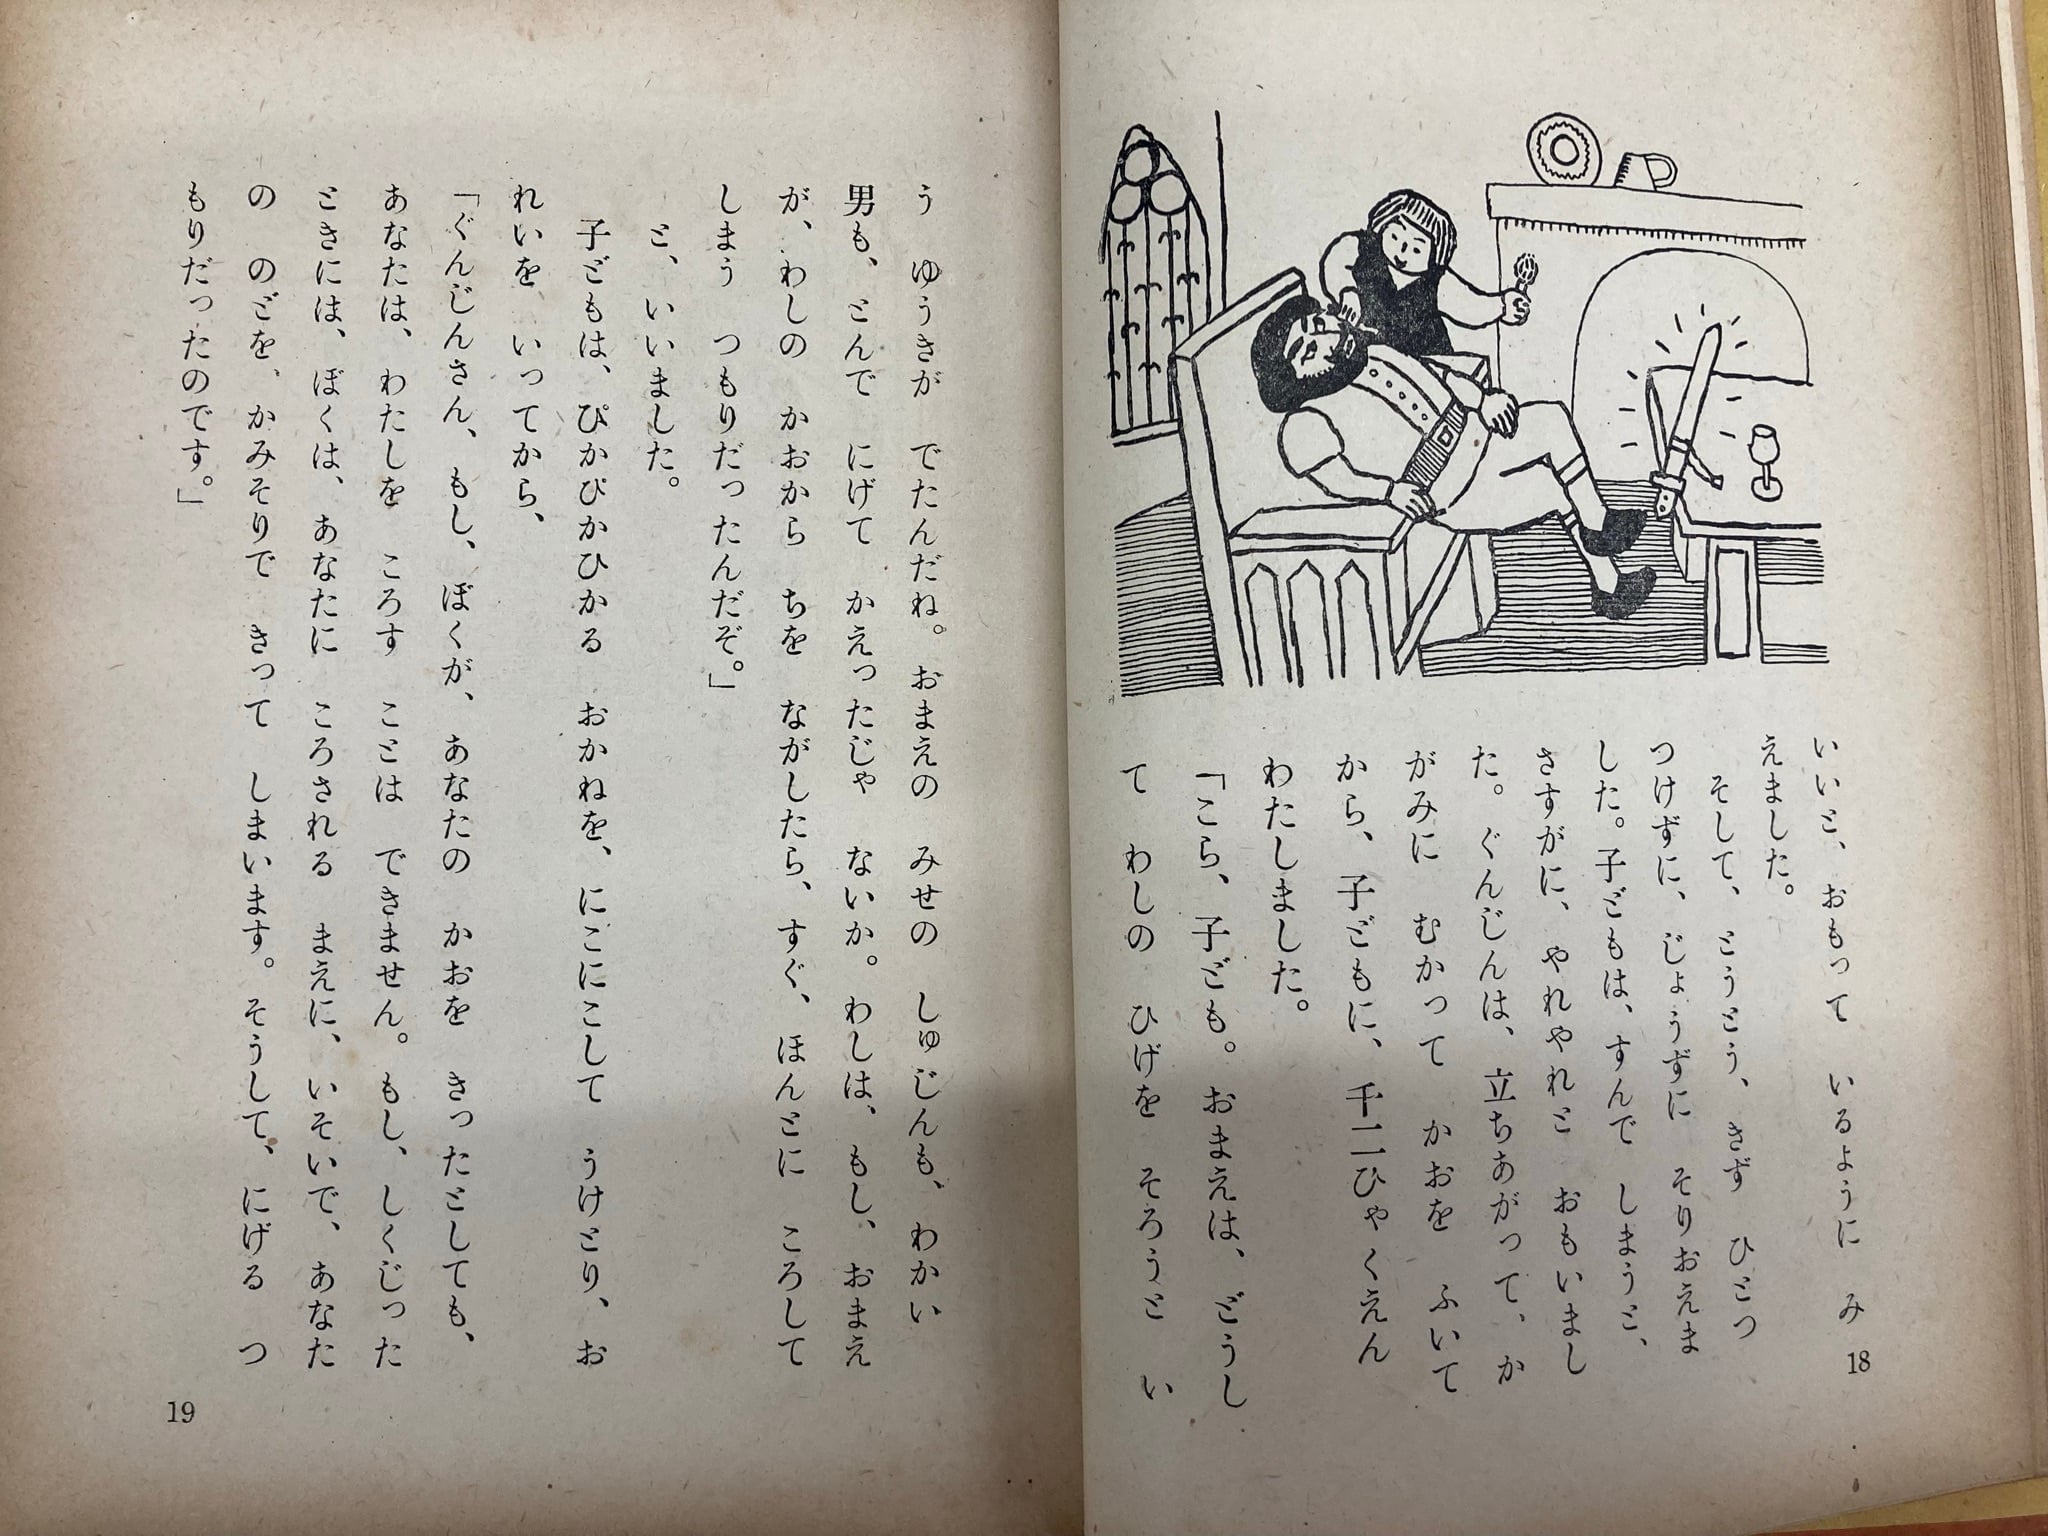 いいと、おもって いるように み
えました。
そして、とうとう、きず ひとつ
つけずに、じょうずに そりおえま
した。子どもは、すんで しまうと、
さすがに、やれやれと おもいまし
た。ぐんじんは、立ちあがって、か
がみに むかって かおを ふいて
から、子どもに、千二ひゃくえん
わたしました。
「こら、子ども。おまえは、どうし
て わしの ひげを そろうと い
18
う ゆうきが でたんだね。おまえの みせの しゅじんも、わかい
男も、とんで にげて かえったじゃ ないか。わしは、もし、おまえ
が、わしの かおから ちを ながしたら、すぐ、ほんとに ころして
しまう つもりだったんだぞ。」
と、いいました。
子どもは、ぴかぴかひかる おかねを、にこにこして うけとり、お
れいを いってから、
「ぐんじんさん、もし、ぼくが、あなたの かおを きったとしても、
あなたは、わたしを ころす ことは できません。もし、しくじった
ときには、ぼくは、あなたに ころされる まえに、いそいで、あなた
の のどを、かみそりで きって しまいます。そうして、にげる つ
もりだったのです。」
19